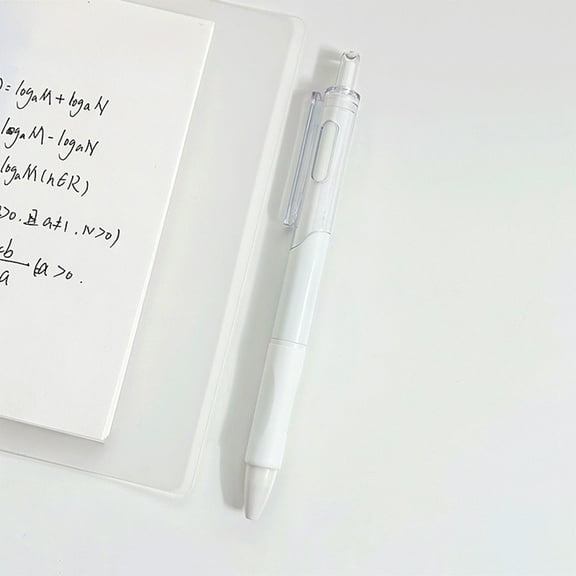 )=logₐM+logₐN
logₐM-logₐN
logₐM(n∈R)
>0.且a≠1.N>0)
b
a (a>0.